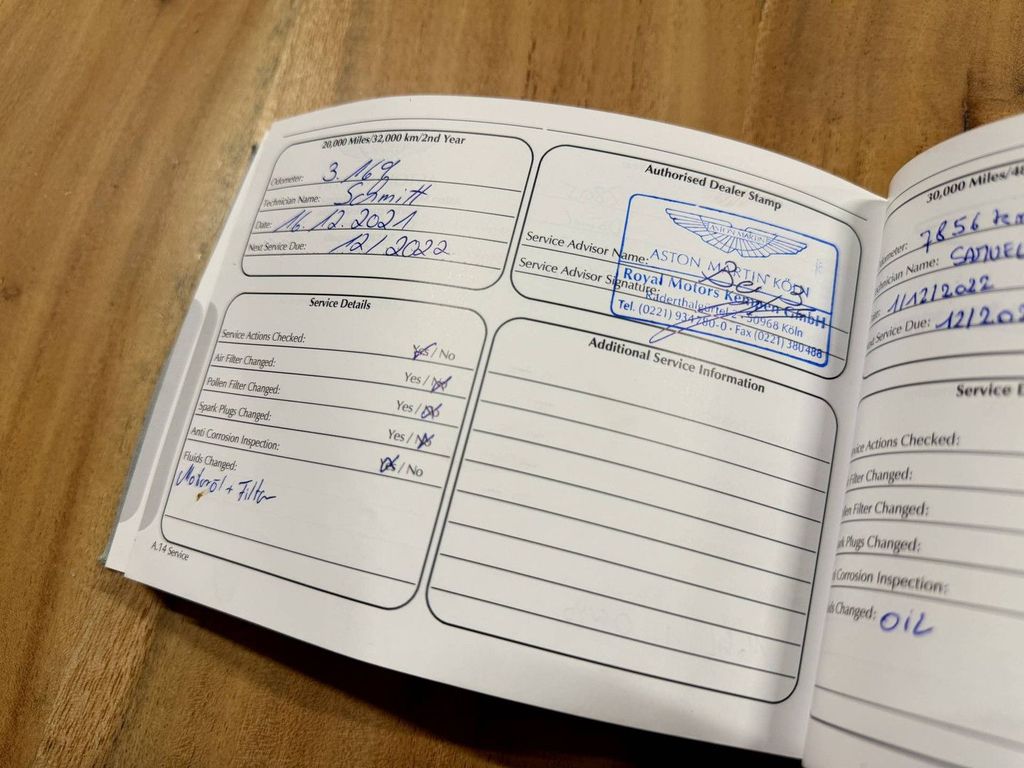 20,000 Miles/32,000 km/2nd Year
Odometer: 3.169
Technician Name: Schmitt
Date: 16.12.2021
Next Service Due: 12/2022
Authorised Dealer Stamp
Service Advisor Name:
Service Advisor Signature:
ASTON MARTIN
ASTON MARTIN KÖLN
Royal Motors Kempen GmbH
Raderthalgürtel 2 · 50968 Köln
Tel. (0221) 934780-0 · Fax (0221) 380488
Service Details
Service Actions Checked: Yes / No
Air Filter Changed: Yes / No
Pollen Filter Changed: Yes / No
Spark Plugs Changed: Yes / No
Anti Corrosion Inspection: Yes / No
Fluids Changed:
Motoröl + Filter
A.14 Service
Additional Service Information
30,000 Miles/48
ometer: 7856 km
hnician Name: SAMUEL
1/12/2022
Service Due: 12/202
Service D
vice Actions Checked:
Filter Changed:
len Filter Changed:
rk Plugs Changed:
Corrosion Inspection:
ids Changed: OIL